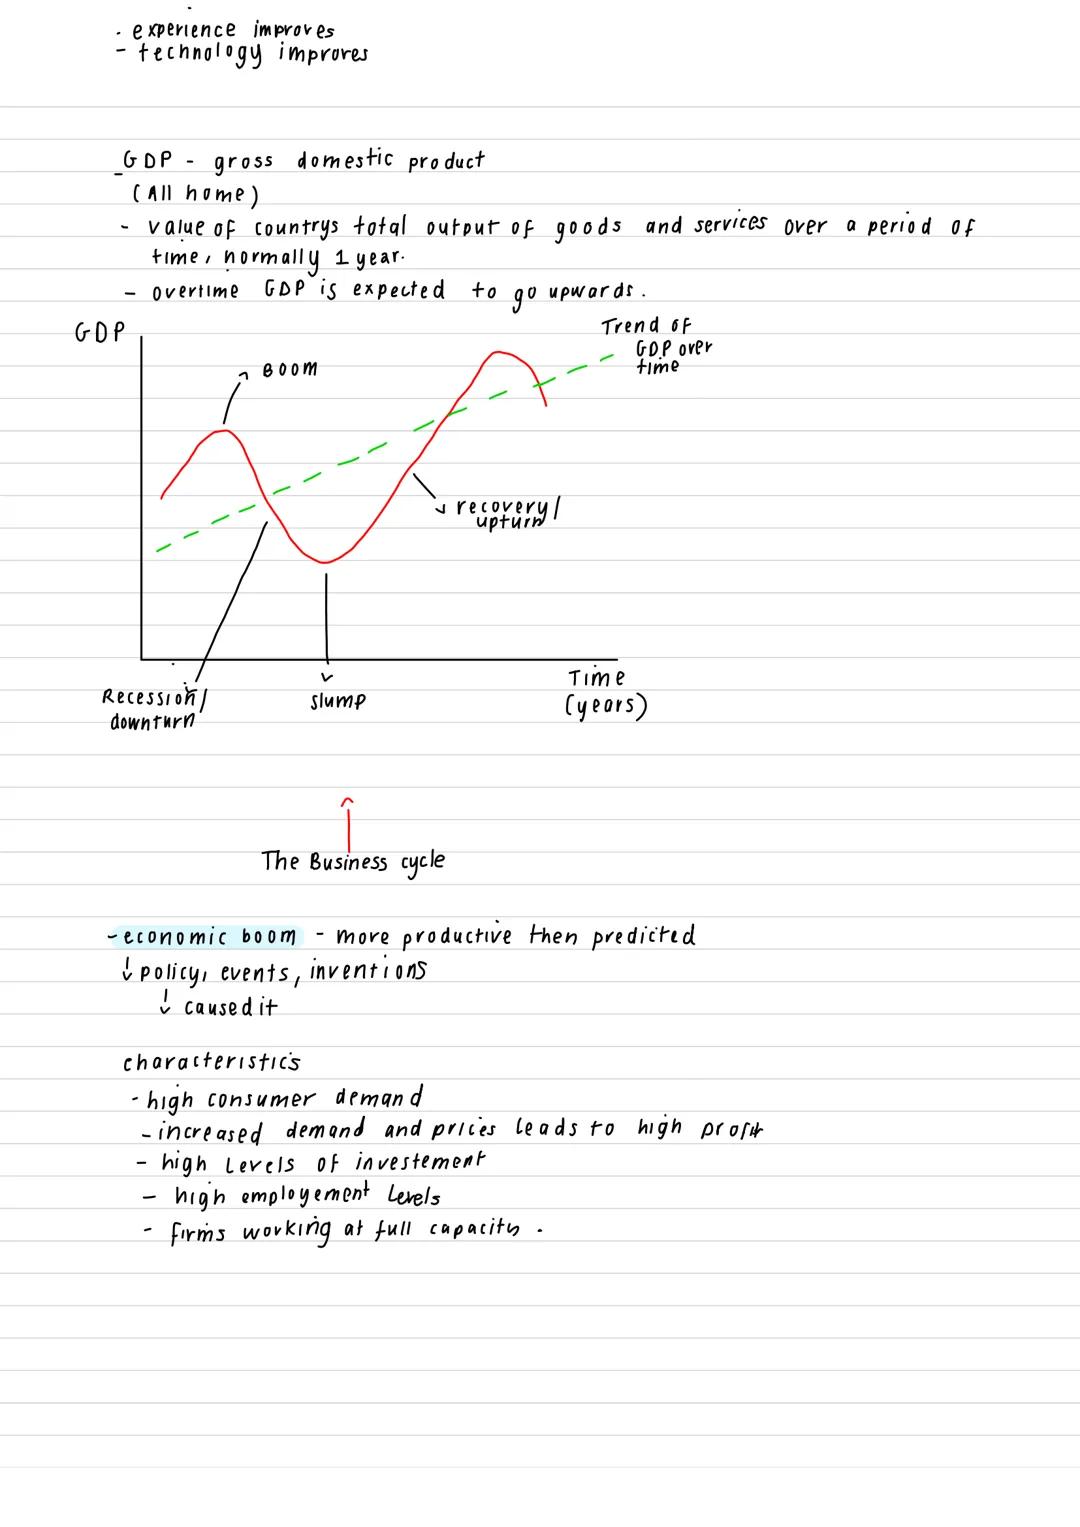 · experience improves
- technology improves
_GDP - gross domestic product
(All home)
- value of countrys total output of goods and services over a period of
time, normally 1 year.
- overtime GDP is expected to go upwards.
GDP
Trend of
GDP over
time
Boom
recovery/
upturn
Time
(years)
Recession/
downturn
slump
The Business cycle
-economic boom - more productive then predicted
↓ policy, events, inventions
↓ caused it
characteristics
- high consumer demand
- increased demand and prices leads to high profit
- high levels of investement
- high employement levels
- firms working at full capacity.